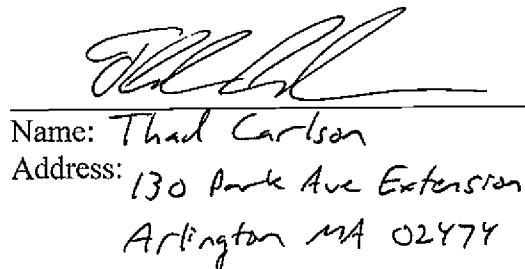 Name: Thad Carlson
Address: 130 Park Ave Extension
Arlington MA 02474